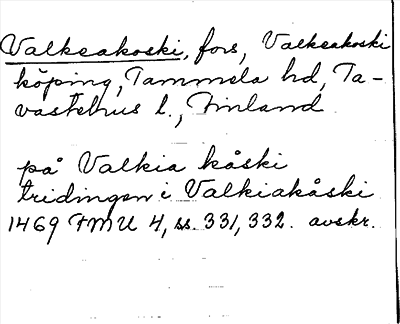 Valkeakoski, fors, Valkeakoski
köping, Tammela hd, Ta-
vastehus l., Finland
på Valkia kåski
tridingen i Valkiakåski
1469 FMU 4, ss. 331, 332. avskr.